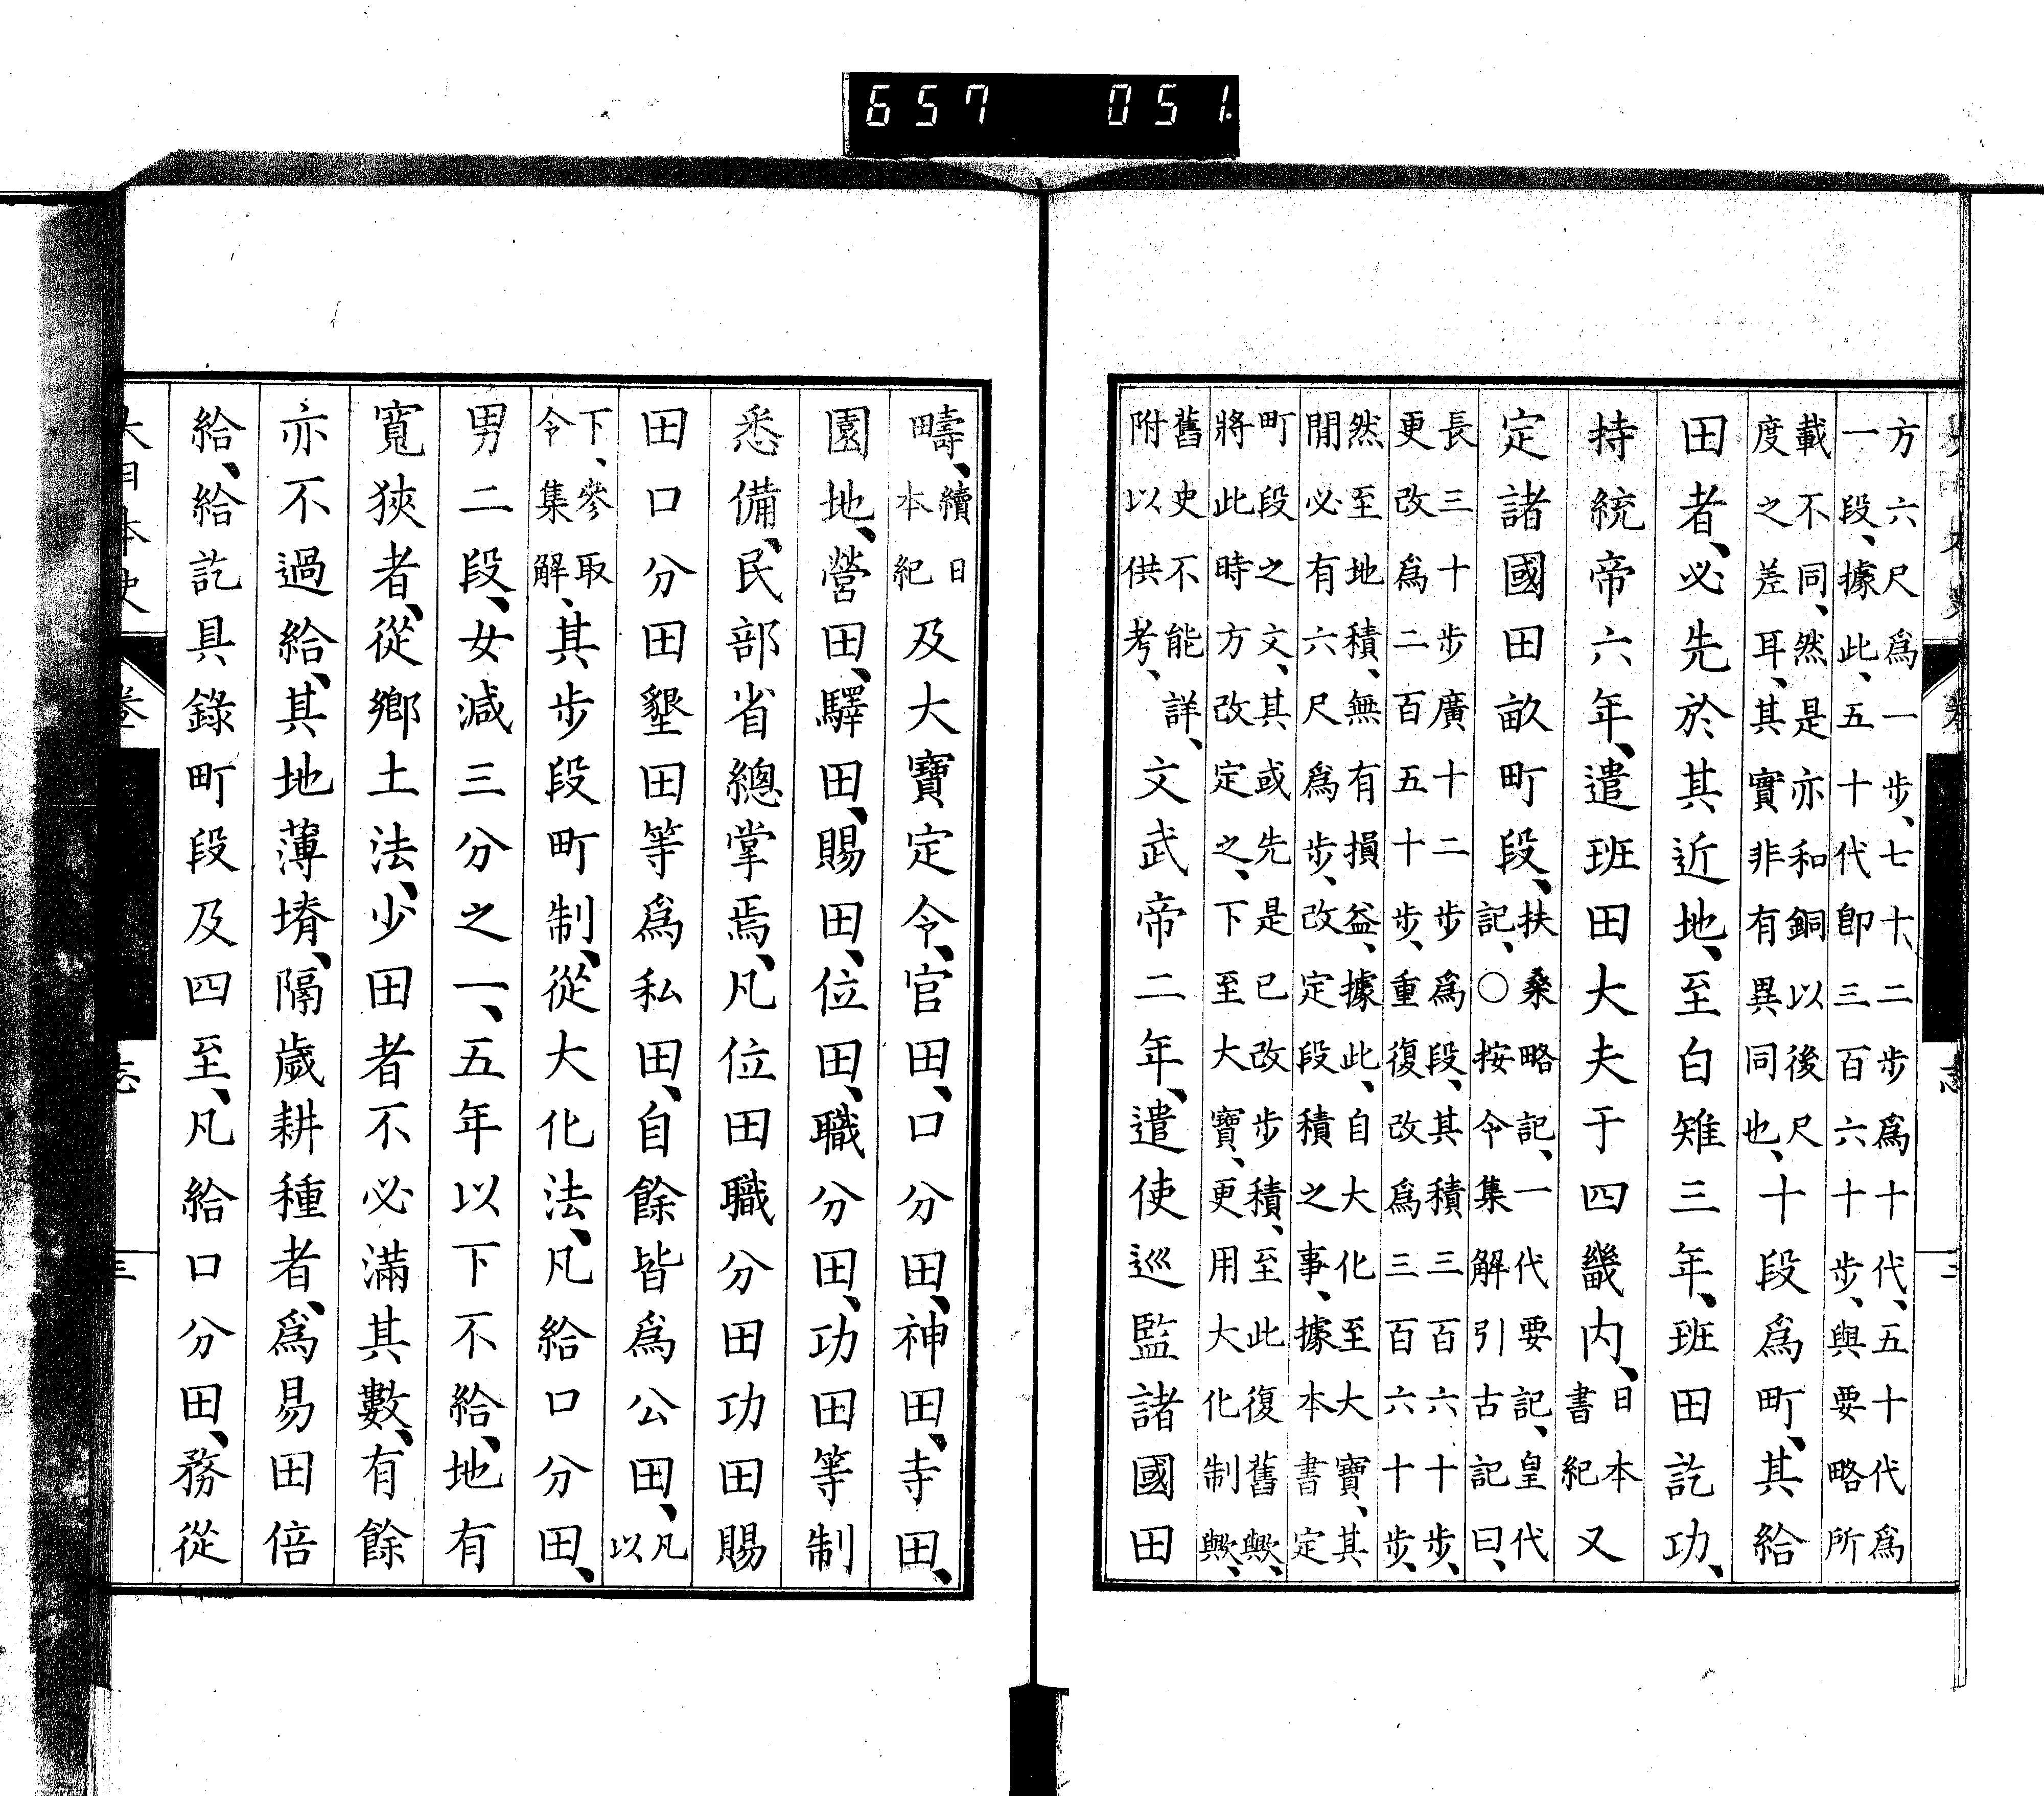 657 051
方六尺爲一步、七十二步爲十代、五十代爲
一段、據此、五十代卽三百六十步、與要略所
載不同、然是亦和銅以後尺
度之差耳、其實非有異同也、十段爲町、其給
田者、必先於其近地、至白雉三年、班田訖功、
持統帝六年、遣班田大夫于四畿内、日本
書紀又
定諸國田畝町段、扶桑略記、一代要記、皇代
記、○按令集解引古記曰、
長三十步廣十二步爲段、其積三百六十步、
更改爲二百五十步、重復改爲三百六十步、
然至地積、無有損益、據此、自大化至大寶、其
閒必有六尺爲步、改定段積之事、據本書定
町段之文、其或先是已改步積、至此復舊歟、
將此時方改定之、下至大寶、更用大化制歟、
舊史不能詳、
附以供考、文武帝二年、遣使巡監諸國田
疇、續日
本紀及大寶定令、官田、口分田、神田、寺田、
園地、營田、驛田、賜田、位田、職分田、功田等制
悉備、民部省總掌焉、凡位田職分田功田賜
田口分田墾田等爲私田、自餘皆爲公田、凡
以
下、參取
令集解、其步段町制、從大化法、凡給口分田、
男二段、女減三分之一、五年以下不給、地有
寬狹者、從鄉土法、少田者不必滿其數、有餘
亦不過給、其地薄塉、隔歲耕種者、爲易田倍
給、給訖具錄町段及四至、凡給口分田、務從
大日本史
卷
志
三